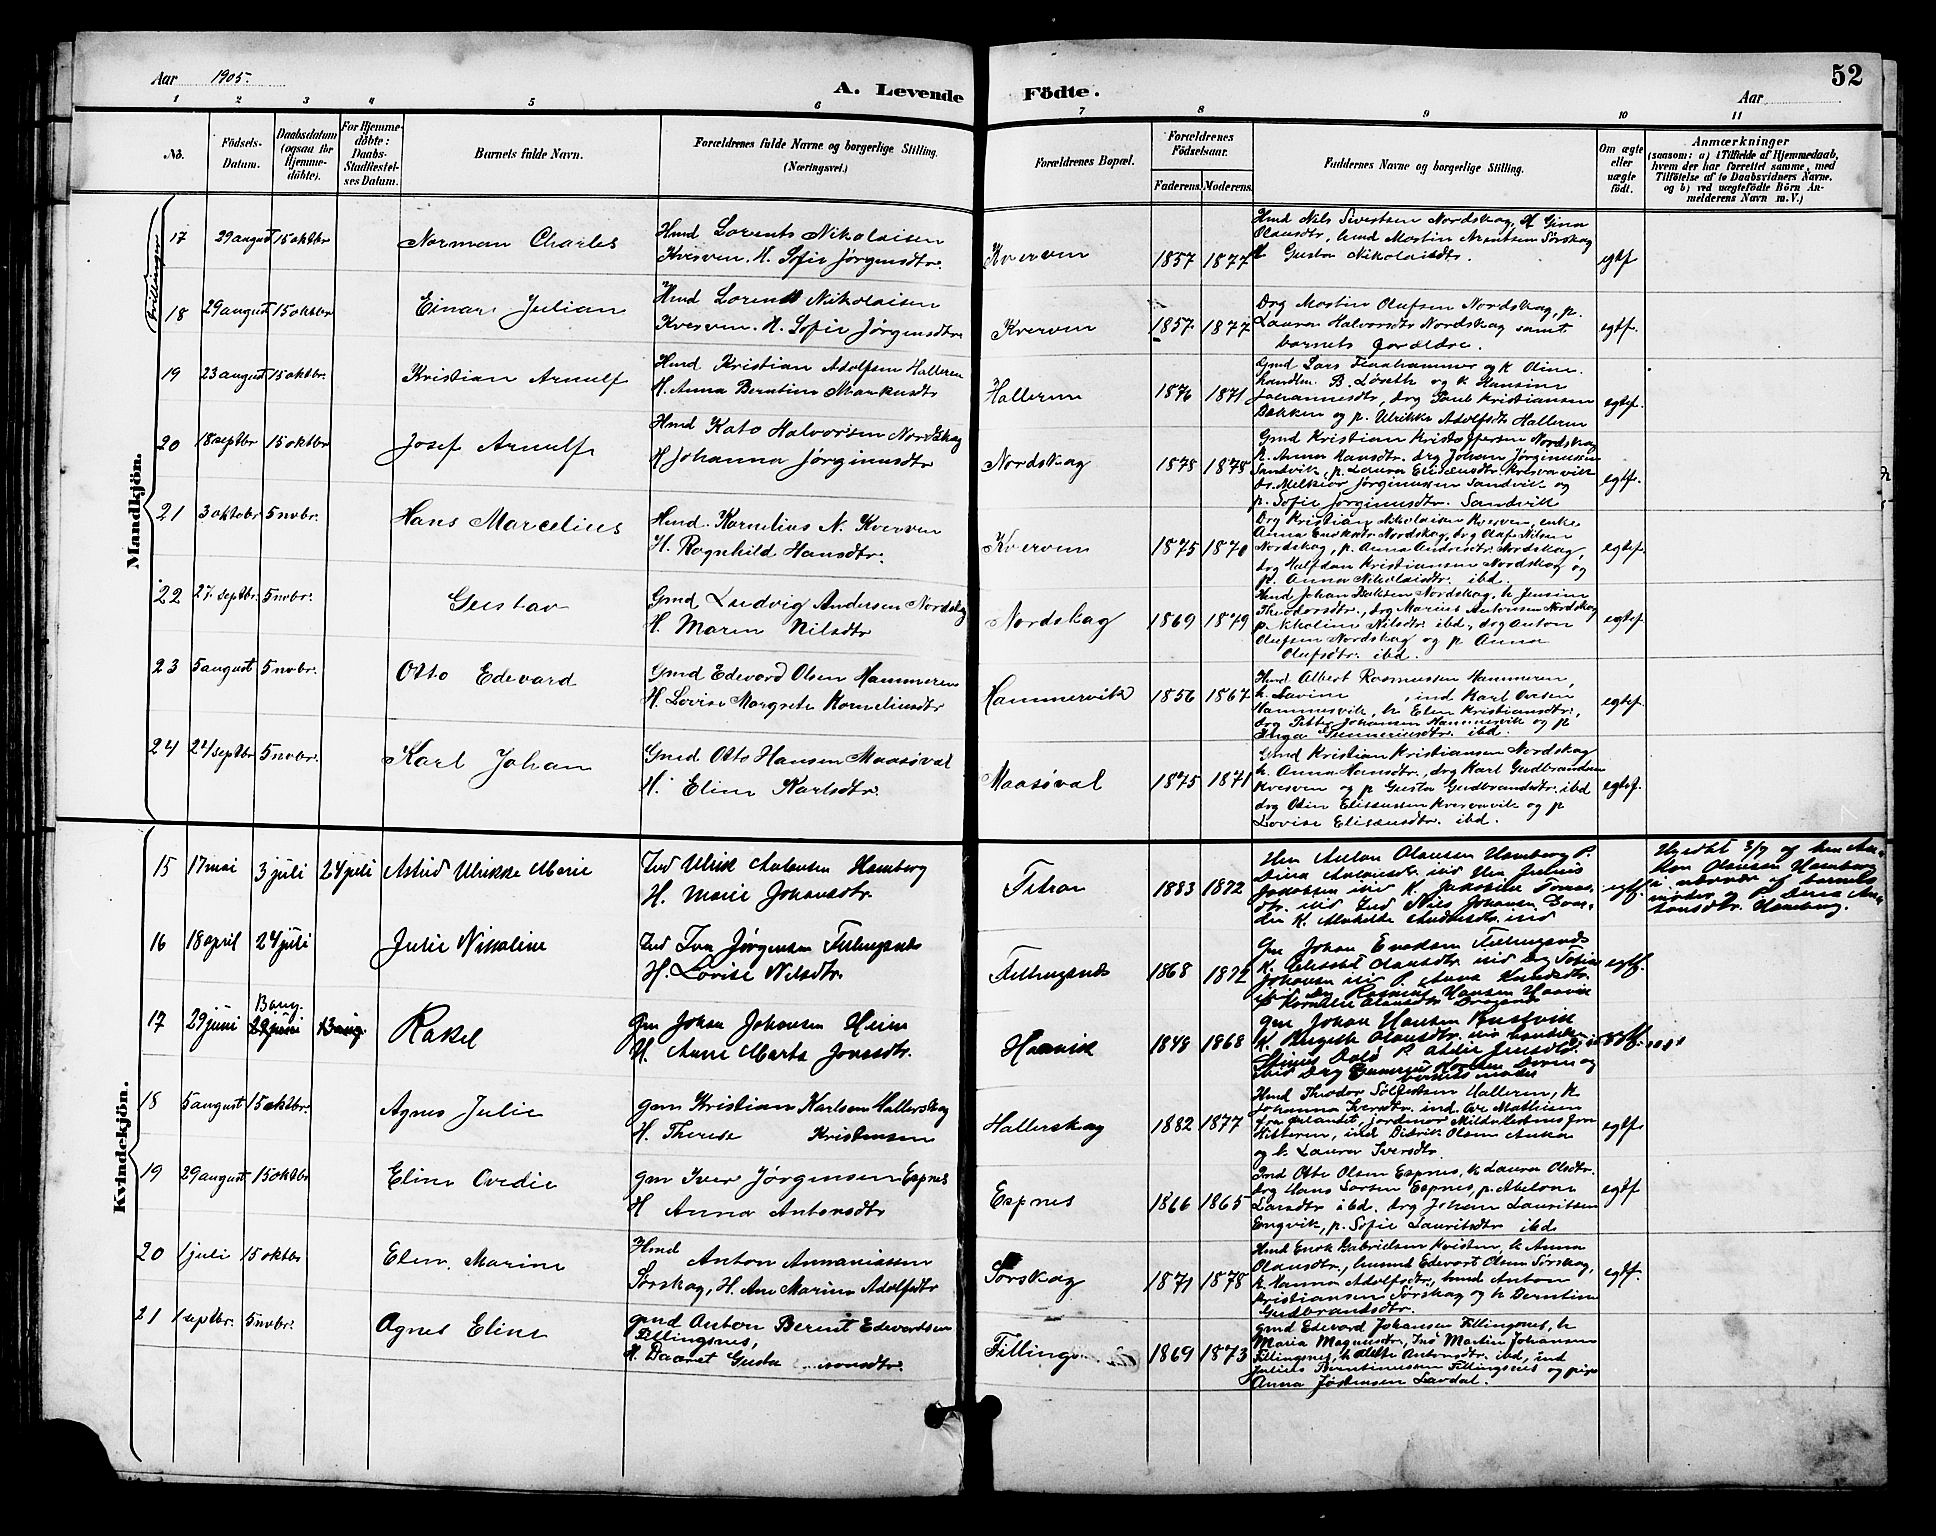 Aar 1905.
A. Levende Födte.
Aar
52
1 2 3 4 5 6 7 8 9 10 11
No.
Födsels-Datum.
Daabsdatum (ogsaa for Hjemme-döbte).
For Hjemme-döbte: Daabs-Stadfæstel-ses Datum.
Barnets fulde Navn.
Forældrenes fulde Navne og borgerlige Stilling. (Næringsvei.)
Forældrenes Bopæl.
Forældrenes Födselsaar.
Faderens. Moderens.
Faddernes Navne og borgerlige Stilling.
Om ægte eller uægte födt.
Anmærkninger
(saasom: a) i Tilfælde af Hjemmedaab,
hvem der har forrettet samme, med
Tilföielse af to Daabsvidners Navne,
og b) ved uægtefödte Börn An-
melderens Navn m. V.)
Mandkjön.
Tvillinger
17 29 august 15 oktbr Norman Charles
Hmd Lorents Nikolaisen
Kverven. H. Sofie Jørginusdtr.
Kverven 1857 1877
Hmd Nils Sivertsen Nordskag, H Gina
Olausdtr, hmd Mostin Arentsen Sørskag
Gusta Nikolaisdtr.
egtf
18 29 august 15 oktbr Einar Julian
Hmd Lorents Nikolaisen
Kverven. H. Sofie Jørginusdtr
Kverven 1857. 1877
Drg Mostin Olufsen Nordskag, p.
Laura Halvorsdtr Nordskag samt
barnets forældre.
egtf.
19 23 august 15 oktbr. Kristian Arnulf
Hmd Kristian Adolfsen Halleren
H. Anna Berntine Markusdtr
Halleren 1876 1871
Gmd Lars Finahammer og k Oline
handlm. B. Løseth og k Hansine
Johannesdtr, drg Paul Kristiansen
Bakken og p. Ulrikke Adolfsdtr Halleren
egtf.
20 18 septbr 15 oktbr Josef Arnulf
Hmd Kato Halvorsen Nordskag
H Johanna Jørginusdtr
Nordskag 1878 1878
Gmd Kristian Kristoffersen Nordskag
k. Anna Hansdtr. drg Johan Jørginussen
Sandvik, p. Laura Eliseusdtr. Kvervavik
dr. Melkior Jørginussen Sandvik og
p. Sofie Jørginusdtr. Sandvik
egtf.
21 3 oktobr 5 nvbr. Hans Marcelius
Hmd. Kornelius N. Kverven
H. Ragnhild Hansdtr.
Kverven 1875 1870
Drg Kristian Nikolaisen Kverven, enke
Anna Enoksdtr Nordskag, drg Olaf Nilsen
Nordskag, p. Anna Andrasdtr. Nordskag,
drg Halfdan Kristiansen Nordskag og
p. Anna Nikolaisdtr. ibd.
egtf.
22 27. septbr. 5 nvbr. Gustav
Gmd Ludvig Andersen Nordskag
H. Maren Nilsdtr
Nordskag 1869 1879
Hmd Johan Nordskag, k. Jensine
Theodorsdtr., drg Marius Antonsen Nordskag
p. Nikoline Nilsdtr. ibd, drg Anton
Olufsen Nordskag og p Anna
Olufsdtr. ibd.
egtf.
23 5 august 5 nvbr. Otto Edevard
Gmd Edevard Olsen Hammeren
H. Lovise Margrete Korneliusdtr
Hammervik 1856 1867
Hmd Albert Rasmussen Hammeren,
k. Lavine , ind Karl Ovesen
Hammervik, k. Elen Kristiansdtr.,
drg Petter Johansen Hammervik og p
Inga Gunneriusdtr. ibd.
egtf.
24 24 septbr 5 nvbr. Karl Johan
Gmd Otto Hansen Maasøval
H. Eline Karlsdtr.
Maasøval 1875 1871
Gmd Kristian Kristiansen Nordskag
k. Anna Hansdtr., drg Karl Gudbrandsen
Kverven og p Gusta Gudbrandsdtr. ibd
drg Odin Eliseussen Kvervavik og p
Lovise Eliseusdtr. ibd.
egtf.
Kvindekjön.
15 17 mai 3 juli 24 juli Astrid Ulrikke Marie
Ind Ulrik Antonsen Hamberg
H. Marie Johansdtr.
Titran 1883 1872
Um Anton Olausen Hamberg P.
Dina Antonsdtr. ibid Um Julius
Jakobsen ibid K. Jakobine Tomas-
dtr. ibid Ind Nils Johansen
K. Andreasdtr. ibid
egtf.
Hjdbt 3/7 af Um An-
ton Olausen Hamberg
i nærvær af barnets
moder og P. Dina An-
tonsdtr. Hamberg.
16 18 april 24 juli Julie Nikoline
Ind Iver Jørgensen Fillingsnes
H. Lovise Nilsdtr.
Fillingsnes 1868 1872
Gm Johan Fillingsnes
K. Olausdtr. ibid Drg Tobias
Johansen ibid P. Anna
ibid Drg Rasmus Hansen Haavik
P Kornelie Olausdtr
egtf.
17 29 juni 13 aug. 29 juni 13 aug. Rakel
Gm Johan Johansen Heim
H. Anne Marta Jonsdtr.
Haavik 1848 1868
Gm Johan Hansen
K. Birgitte Olausdtr. ibid
P. Jensdtr.
ibid Drg og
barnets moder
egtf.
18 5 august 15 oktbr. Agnes Julie
gm Kristian Karlsen Hallerskag
H. Therese Kristensen
Hallerskag 1882 1877
Hmd Theodor Halleren, k
Johanna Iversdtr. ind. Ove Mathisen
fra Ørlandet, jordmor Milda Leknes fra
Hitteren, ind Didrik Olsen Anka
og k. Laura Iversdtr.
egtf.
19 29 august 15 oktbr. Eline Ovedie
gm Iver Jørgensen Espnes
H Anna Antonsdtr
Espnes 1866 1865
Ind Otto Olsen Espnes, k Laura Olsdtr.
drg Hans Larsen Espnes, p. Abelone
Larsdtr ibd. drg Johan Lauritsen
Engvik, p. Sofie Lauritsdtr ibd
egtf
20 1 juli 15 oktbr Elen Marine
Hmd Anton Annaniassen
Sørskag, H. Ane Marine Adolfsdtr
Sørskag 1871 1878
Hmd Enok Gabrielsen Kvisten, k Anna
Olausdtr., husmd Edevart Olsen Sørskag,
k. Hanna Adolfsdtr., hmd Anton
Kristiansen Sørskag og k Berntine
Gudbrandsdtr.
egtf.
21 1 septbr. 5 nvbr. Agnes Eline
gmd Anton Berent Edevardsen
Fillingsnes,
H. Daaret Gusta
Fillingsnes 1869 1873
gmd Edevard Johansen Fillingsnes, k
Maria Magnusdtr, Ind Martin Johansen
Fillingsnes, k Antonsdtr. ibd, ind
Julius Fillingsnes og pige
Anna Jøstensen Lavdal.